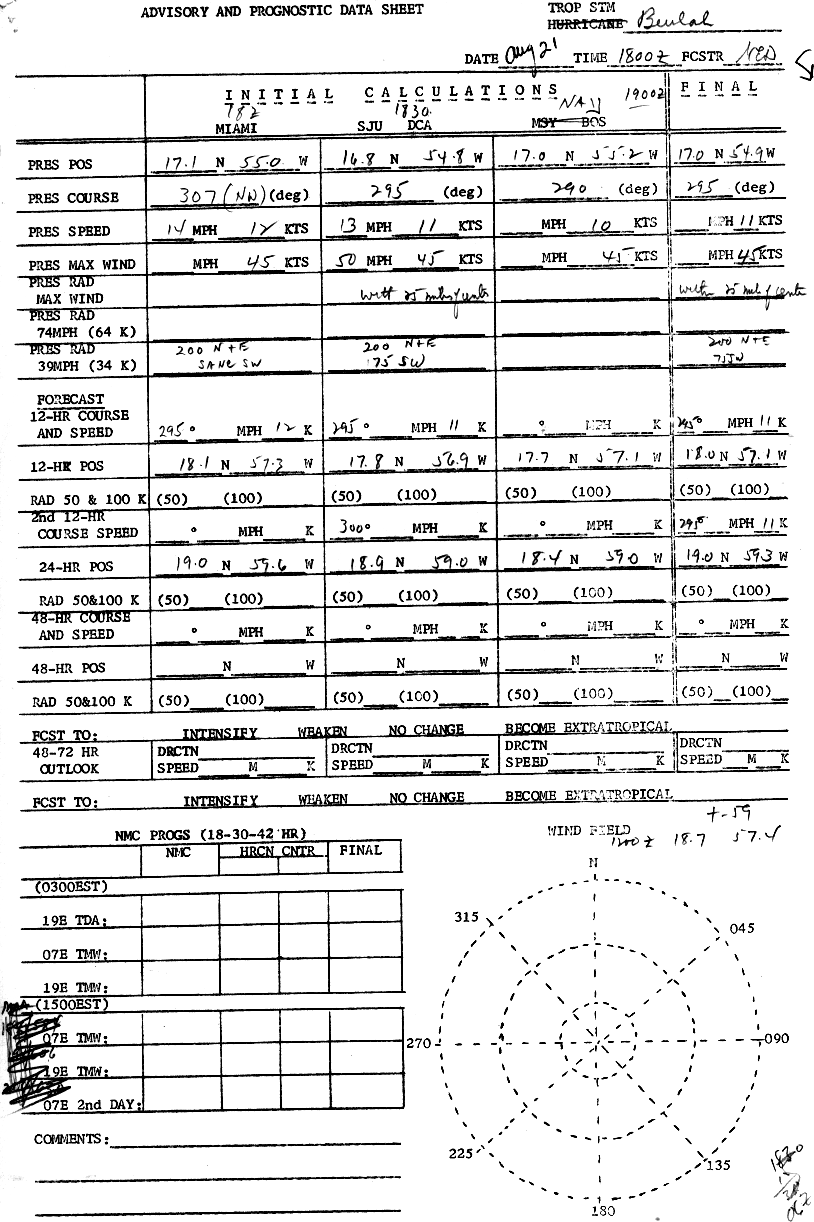 ADVISORY AND PROGNOSTIC DATA SHEET
TROP STM
HURRICANE Beulah
DATE Aug 21 TIME 1800Z FCSTR NED
INITIAL CALCULATIONS 1900Z FINAL
782 1830 NAVY
MIAMI SJU DCA MSY BOS
PRES POS 17.1 N 55.0 W 16.8 N 54.8 W 17.0 N 55.2 W 17.0 N 54.9 W
PRES COURSE 307 (NW) (deg) 295 (deg) 290 (deg) 295 (deg)
PRES SPEED 14 MPH 12 KTS 13 MPH 11 KTS MPH 10 KTS MPH 11 KTS
PRES MAX WIND MPH 45 KTS 50 MPH 45 KTS MPH 45 KTS MPH 45 KTS
PRES RAD
MAX WIND with 25 mls of center with 25 mls of center
PRES RAD
74MPH (64 K)
PRES RAD 200 N+E 200 N+E 200 N+E
39MPH (34 K) SANE SW 175 SW 75 SW
FORECAST
12-HR COURSE
AND SPEED 295 ° MPH 12 K 295 ° MPH 11 K ° MPH K 295° MPH 11 K
12-HR POS 18.1 N 57.3 W 17.8 N 56.9 W 17.7 N 57.1 W 18.0 N 57.1 W
RAD 50 & 100 K (50) (100) (50) (100) (50) (100) (50) (100)
2nd 12-HR
COURSE SPEED ° MPH K 300° MPH K ° MPH K 295° MPH 11 K
24-HR POS 19.0 N 59.6 W 18.9 N 59.0 W 18.4 N 59.0 W 19.0 N 59.3 W
RAD 50&100 K (50) (100) (50) (100) (50) (100) (50) (100)
48-HR COURSE
AND SPEED ° MPH K ° MPH K ° MPH K ° MPH K
48-HR POS N W N W N W N W
RAD 50&100 K (50) (100) (50) (100) (50) (100) (50) (100)
FCST TO: INTENSIFY WEAKEN NO CHANGE BECOME EXTRATROPICAL
48-72 HR DRCTN DRCTN DRCTN DRCTN
OUTLOOK SPEED M K SPEED M K SPEED M K SPEED M K
FCST TO: INTENSIFY WEAKEN NO CHANGE BECOME EXTRATROPICAL
+-59
NMC PROGS (18-30-42 HR) WIND FIELD 1200Z 18.7 57.4
NMC HRCN CNTR FINAL
N
(0300EST)
315 045
19E TDA:
07E TMW:
19E TMW:
(1500EST)
07E TMW:
270 090
19E TMW:
07E 2nd DAY:
COMMENTS:
225 135
180